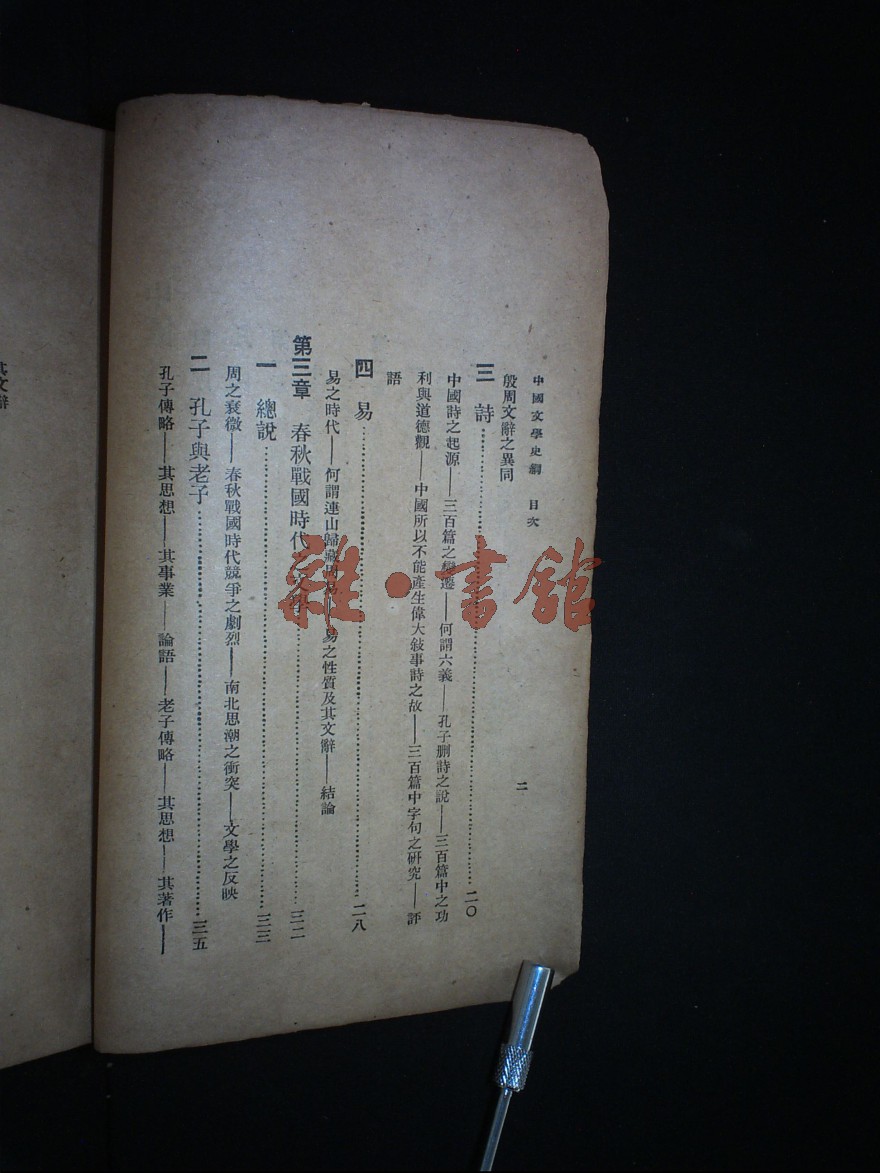 中國文學史綱　目次
二
殷周文辭之異同
三　詩……二〇
中國詩之起源——三百篇之變遷——何謂六義——孔子刪詩之說——三百篇中之功
利與道德觀——中國所以不能產生偉大敍事詩之故——三百篇中字句之研究——評
語
四　易……二八
易之時代——何謂連山歸藏周易——易之性質及其文辭——結論
第三章　春秋戰國時代之文學……三二
一　總說……三三
周之衰微——春秋戰國時代競爭之劇烈——南北思潮之衝突——文學之反映
二　孔子與老子……三五
孔子傳略——其思想——其事業——論語——老子傳略——其思想——其著作——
其文辭
雜·書館